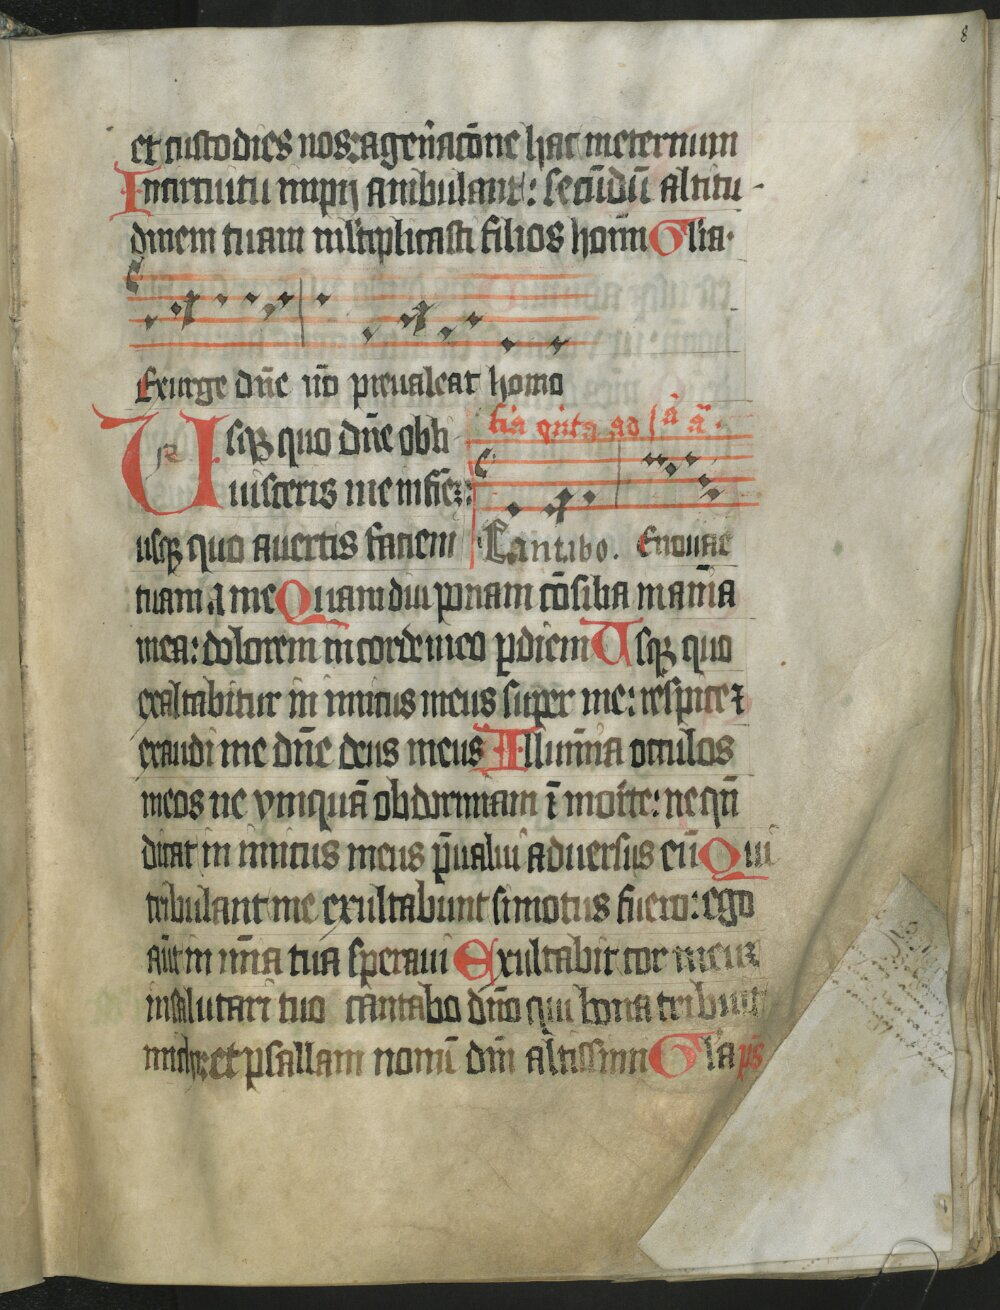 8
et custodies nos: a gen̄acōne hac ineternum
In circuitu impij ambulant: secūdū altitu
dinem tuam mltiplicasti filios hoīm Gl̄ia.
Exurge dn̄e nō preualeat homo
fīa qīnta ad
Usq̨ quo dn̄e obli
uisceris me in finē:
usq̨ quo auertis faciem
Cantabo. Euouae
tuam a me Quamdiu ponam cōsilia in aīa
mea: dolorem in corde meo p̱ diem Usq̨ quo
exaltabitur in imicus meus super me: respice ⁊
exaudi me dn̄e deus meus Illumīa occulos
meos ne vmquā obdormiam ī morte: ne qn̄
dicat in imicus meus p̄ualui aduersus eū Qui
tribulant me exultabunt si motus fuero: ego
aūt in mīa tua speraui Exultabit cor meum
in salutari tuo cantabo dn̄o qui bona tribuit
michi: et psallam nomī dn̄i altissimi Gl̄a ps̄